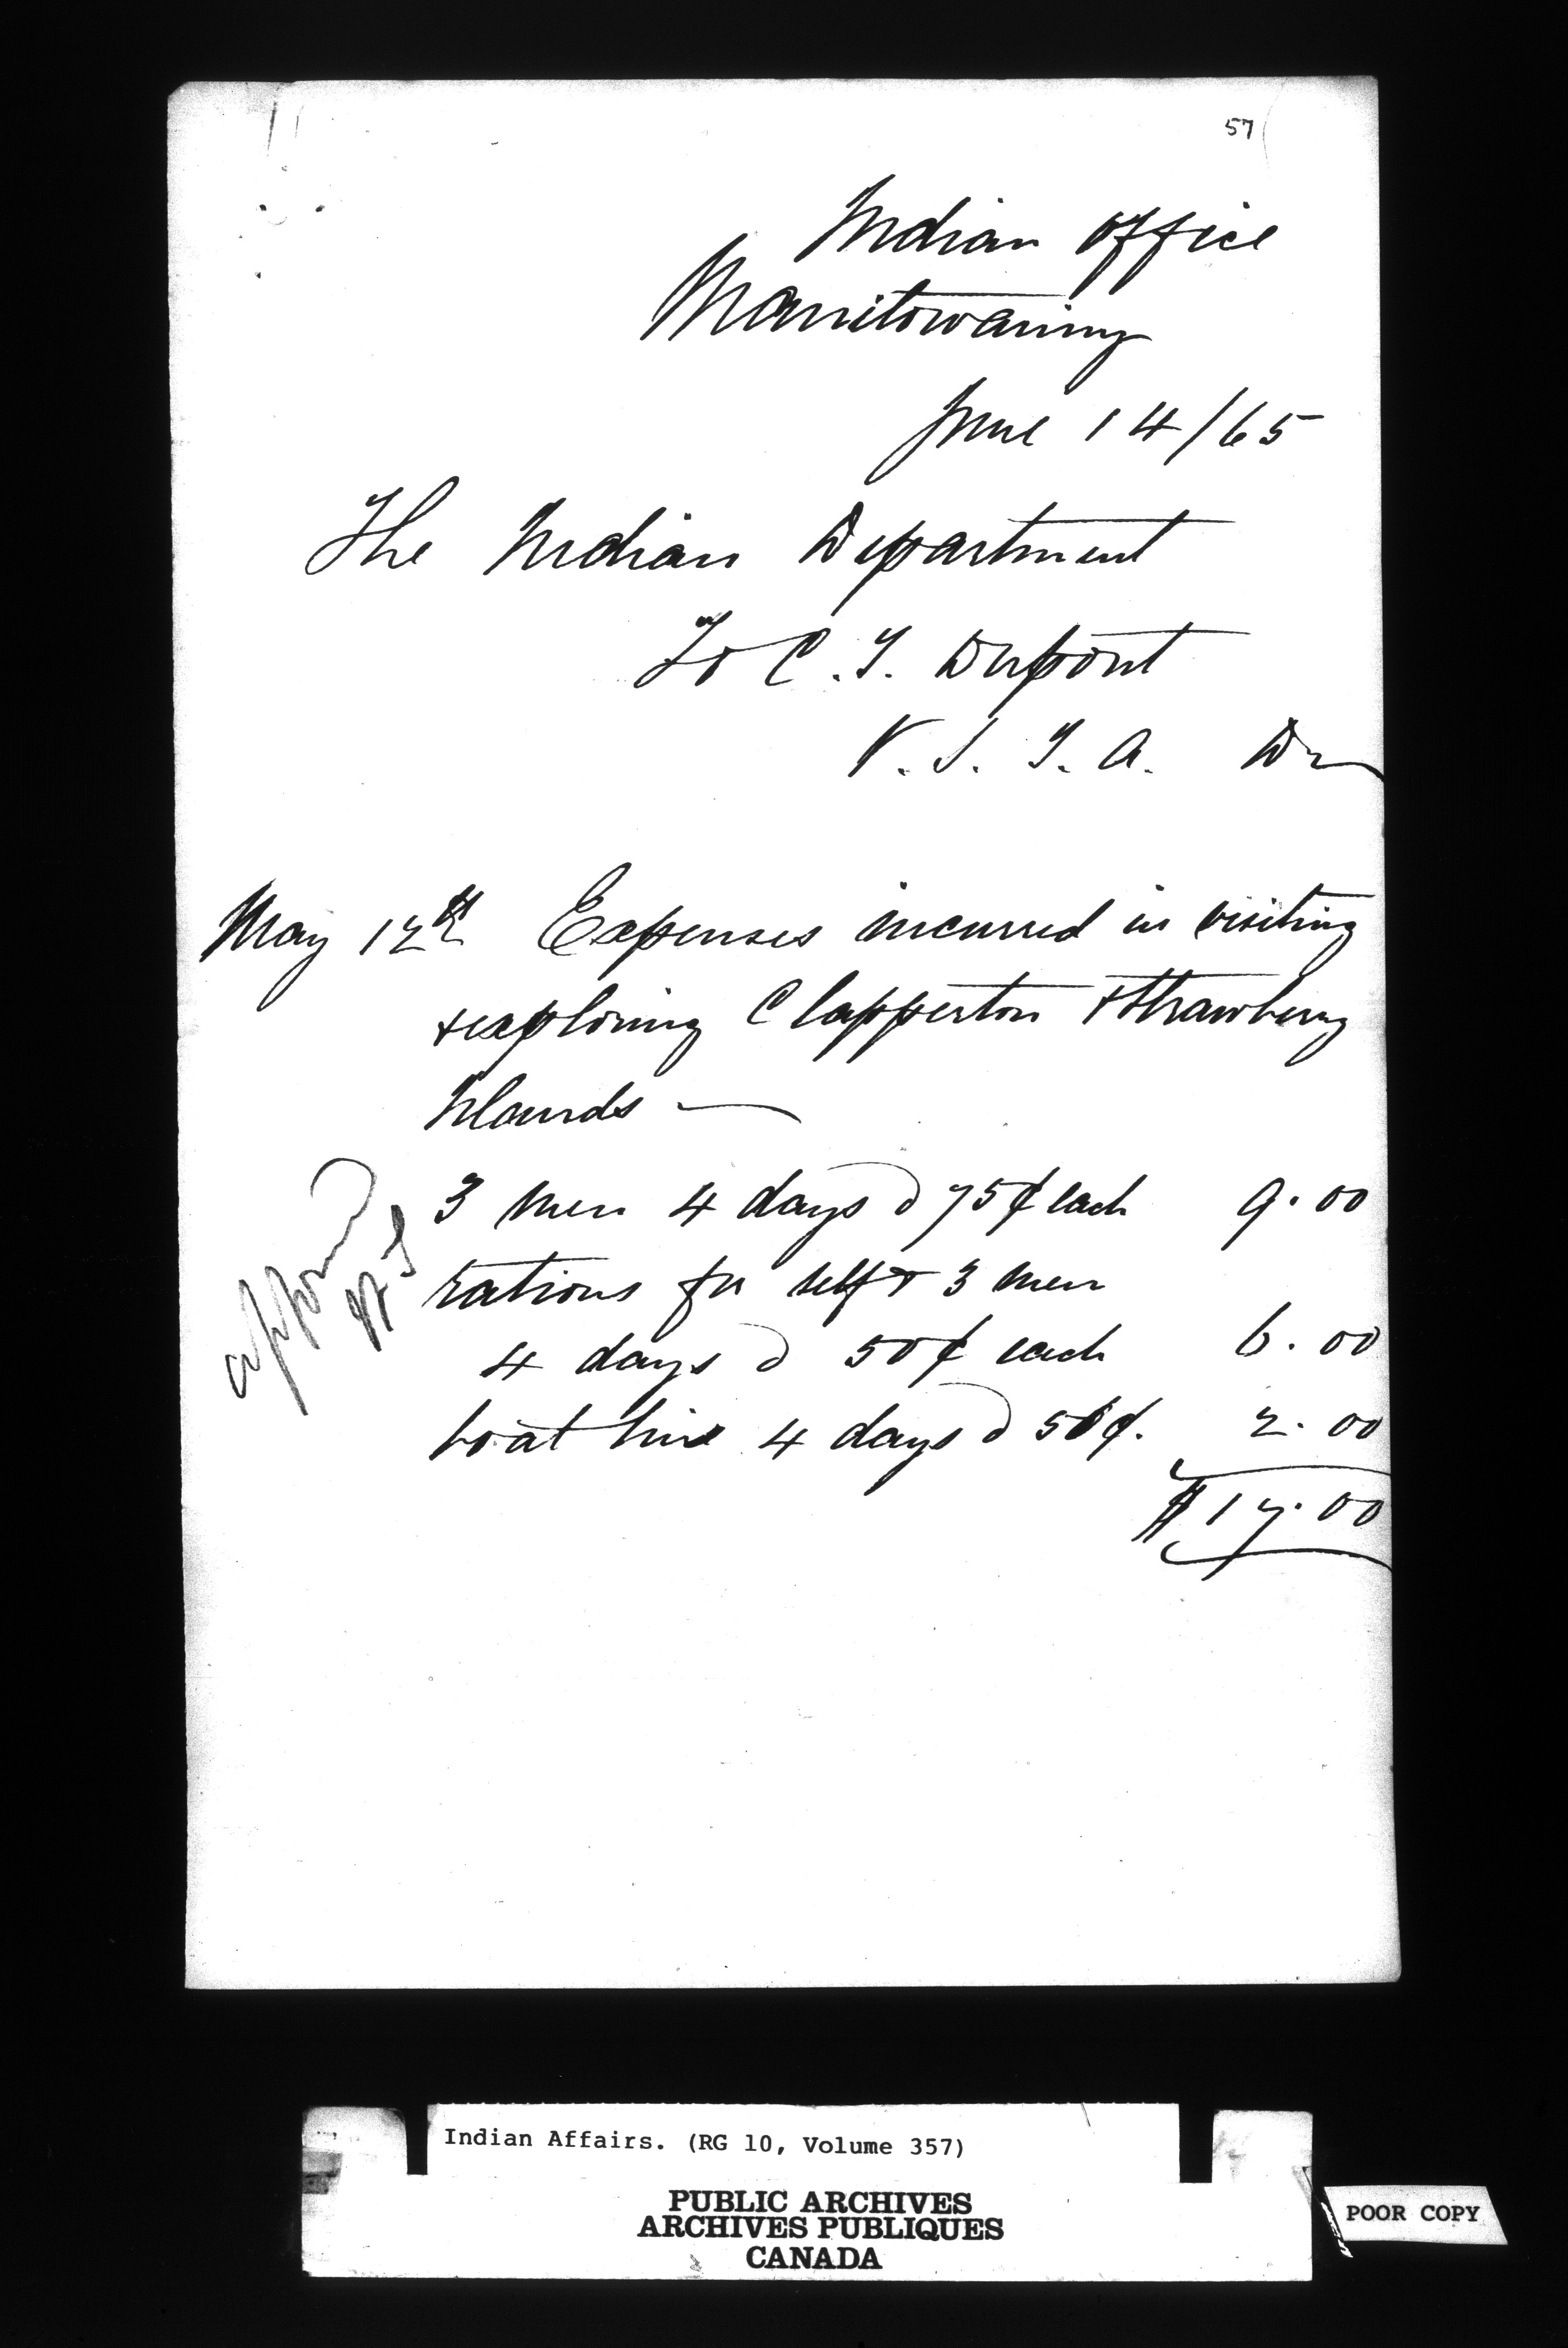 57
Indian Office
Manitowaning
June 14/65
The Indian Department
To C. T. Dupont
V. S. I. A. Dr
May 12th Expenses incurred in visiting
& exploring Clapperton & Strawberry
Islands —
3 men 4 days @ 75¢ each 9.00
rations for self & 3 men
4 days @ 50¢ each 6.00
boat hire 4 days @ 50¢. 2.00
$17.00
approved
Indian Affairs. (RG 10, Volume 357)
PUBLIC ARCHIVES
ARCHIVES PUBLIQUES
CANADA
POOR COPY